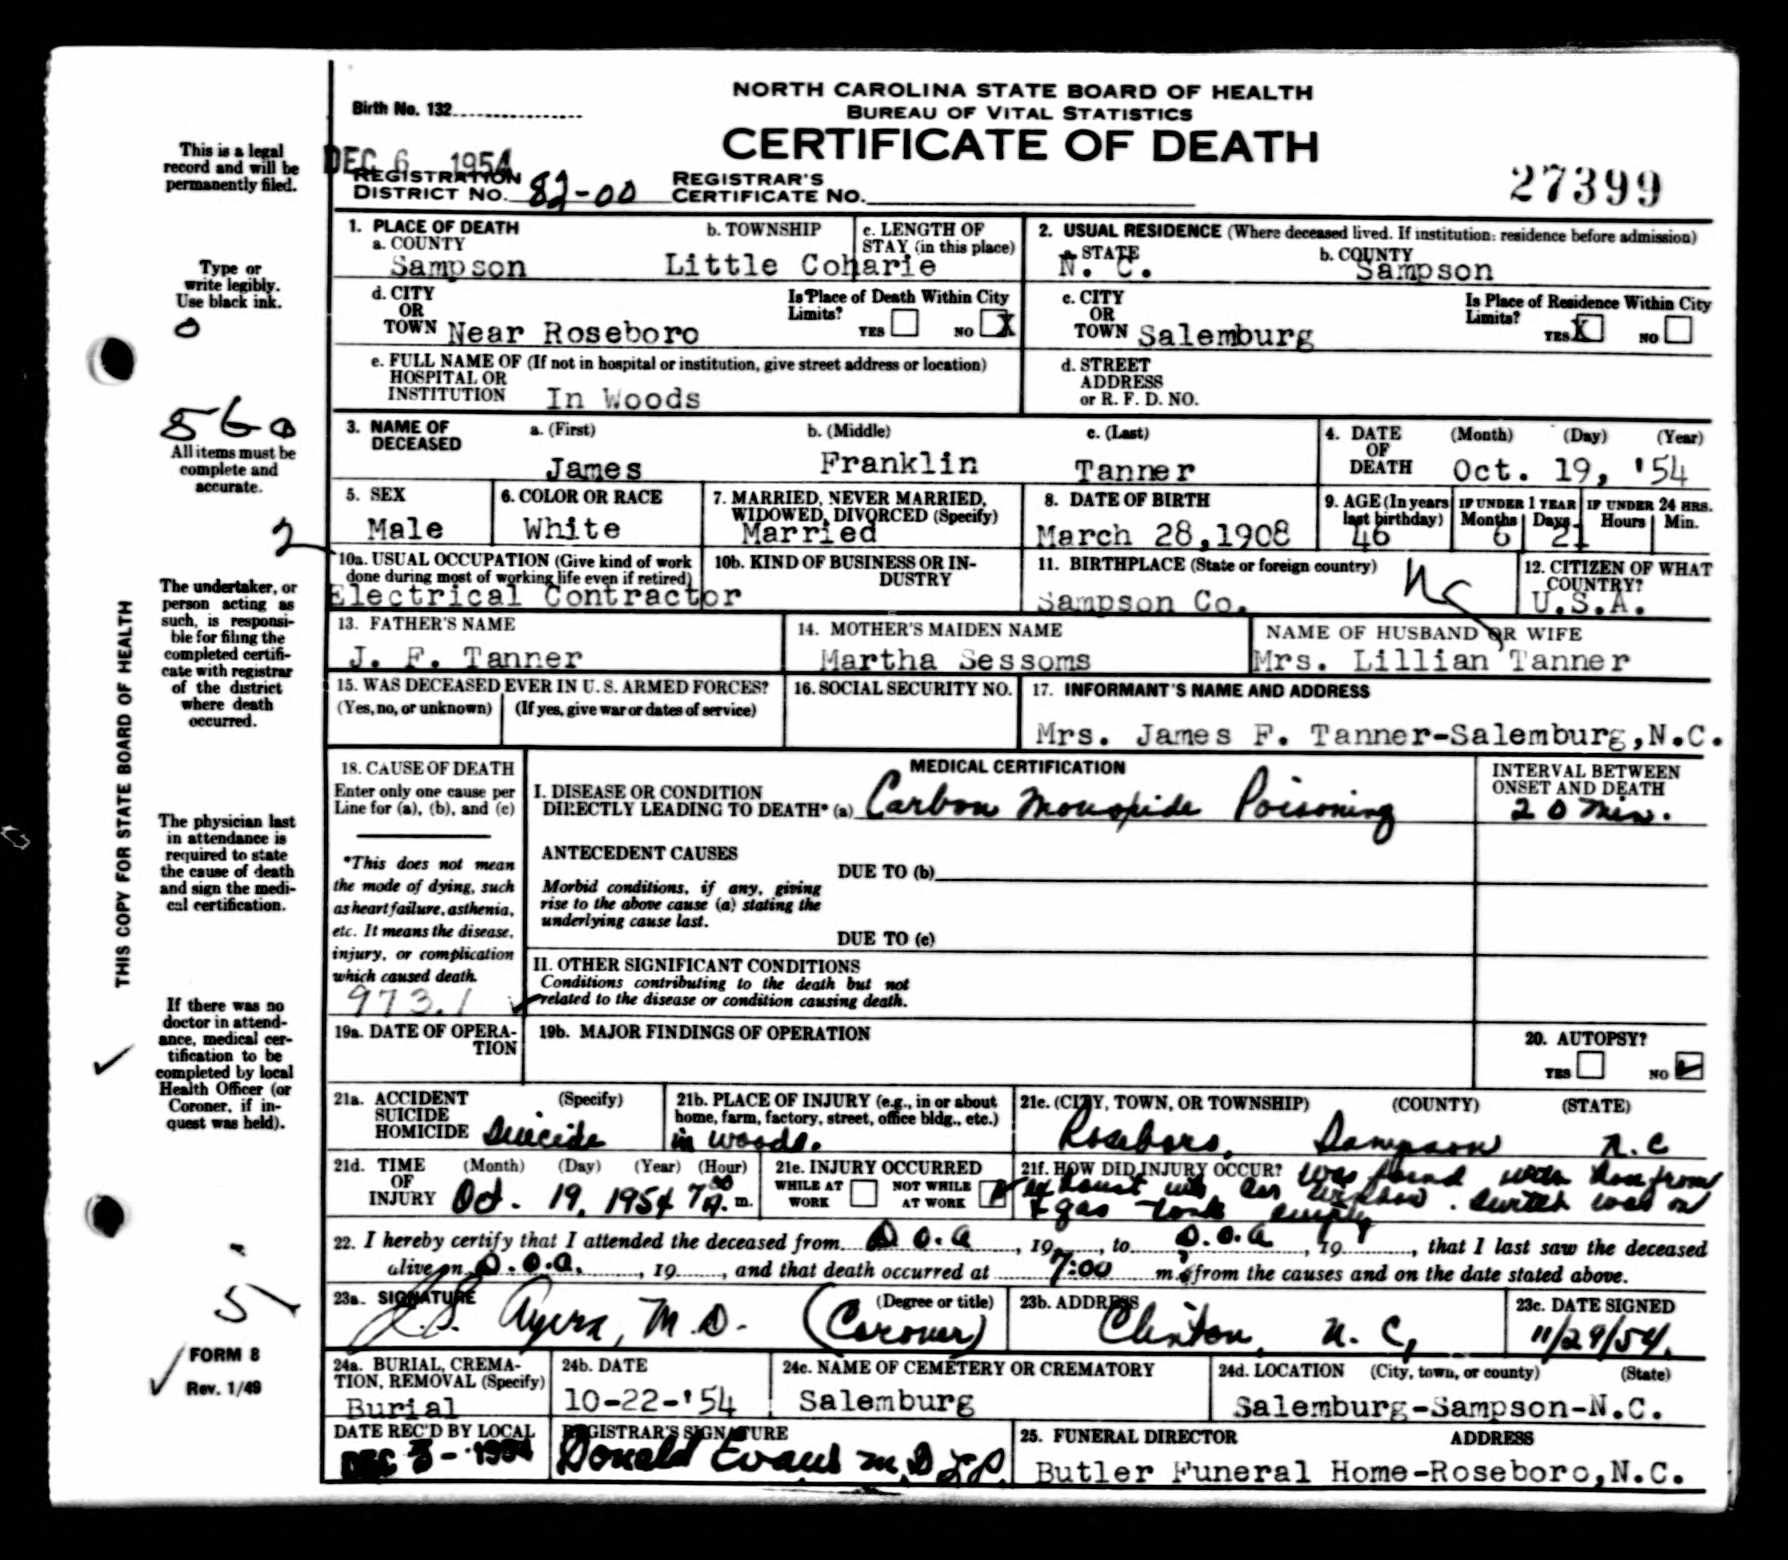 NORTH CAROLINA STATE BOARD OF HEALTH
BUREAU OF VITAL STATISTICS
CERTIFICATE OF DEATH
Birth No. 132
DEC 6 1954
REGISTRATION DISTRICT NO. 82-00
REGISTRAR'S CERTIFICATE NO.
27399
This is a legal record and will be permanently filed.
Type or write legibly. Use black ink.
0
560
All items must be complete and accurate.
2
The undertaker, or person acting as such, is responsible for filing the completed certificate with registrar of the district where death occurred.
THIS COPY FOR STATE BOARD OF HEALTH
The physician last in attendance is required to state the cause of death and sign the medical certification.
If there was no doctor in attendance, medical certification to be completed by local Health Officer (or Coroner, if inquest was held).
5
FORM 8
Rev. 1/49
1. PLACE OF DEATH
a. COUNTY Sampson
b. TOWNSHIP Little Coharie
c. LENGTH OF STAY (in this place)
2. USUAL RESIDENCE (Where deceased lived. If institution: residence before admission)
a. STATE N. C.
b. COUNTY Sampson
d. CITY OR TOWN Near Roseboro
Is Place of Death Within City Limits? YES NO X
c. CITY OR TOWN Salemburg
Is Place of Residence Within City Limits? YES X NO
e. FULL NAME OF HOSPITAL OR INSTITUTION (If not in hospital or institution, give street address or location)
In Woods
d. STREET ADDRESS or R. F. D. NO.
3. NAME OF DECEASED
a. (First) James
b. (Middle) Franklin
c. (Last) Tanner
4. DATE OF DEATH (Month) (Day) (Year)
Oct. 19, '54
5. SEX Male
6. COLOR OR RACE White
7. MARRIED, NEVER MARRIED, WIDOWED, DIVORCED (Specify) Married
8. DATE OF BIRTH March 28,1908
9. AGE (In years last birthday) 46
IF UNDER 1 YEAR Months 6 Days 21
IF UNDER 24 HRS. Hours Min.
10a. USUAL OCCUPATION (Give kind of work done during most of working life even if retired)
Electrical Contractor
10b. KIND OF BUSINESS OR INDUSTRY
11. BIRTHPLACE (State or foreign country)
Sampson Co. NC
12. CITIZEN OF WHAT COUNTRY? U.S.A.
13. FATHER'S NAME J. F. Tanner
14. MOTHER'S MAIDEN NAME Martha Sessoms
NAME OF HUSBAND OR WIFE Mrs. Lillian Tanner
15. WAS DECEASED EVER IN U. S. ARMED FORCES?
(Yes, no, or unknown) (If yes, give war or dates of service)
16. SOCIAL SECURITY NO.
17. INFORMANT'S NAME AND ADDRESS
Mrs. James F. Tanner-Salemburg,N.C.
18. CAUSE OF DEATH
Enter only one cause per Line for (a), (b), and (c)
*This does not mean the mode of dying, such as heart failure, asthenia, etc. It means the disease, injury, or complication which caused death.
973.1
MEDICAL CERTIFICATION
I. DISEASE OR CONDITION DIRECTLY LEADING TO DEATH* (a) Carbon Monoxide Poisoning
INTERVAL BETWEEN ONSET AND DEATH
20 Min.
ANTECEDENT CAUSES
Morbid conditions, if any, giving rise to the above cause (a) stating the underlying cause last.
DUE TO (b)
DUE TO (c)
II. OTHER SIGNIFICANT CONDITIONS
Conditions contributing to the death but not related to the disease or condition causing death.
19a. DATE OF OPERATION
19b. MAJOR FINDINGS OF OPERATION
20. AUTOPSY?
YES NO
21a. ACCIDENT SUICIDE HOMICIDE (Specify) Suicide
21b. PLACE OF INJURY (e.g., in or about home, farm, factory, street, office bldg., etc.)
in woods.
21c. (CITY, TOWN, OR TOWNSHIP) (COUNTY) (STATE)
Roseboro, Sampson N.C
21d. TIME OF INJURY (Month) (Day) (Year) (Hour)
Oct. 19, 1954 7 00 A. m.
21e. INJURY OCCURRED
WHILE AT WORK NOT WHILE AT WORK
21f. HOW DID INJURY OCCUR? Was found with hose from
exhaust in car window. Switch was on
& gas tank empty
22. I hereby certify that I attended the deceased from D.O.A, 19, to D.O.A, 19, that I last saw the deceased
alive on D.O.A., 19, and that death occurred at 7:00 m., from the causes and on the date stated above.
23a. SIGNATURE (Degree or title)
Ayers, M.D. (Coroner)
23b. ADDRESS
Clinton, N. C,
23c. DATE SIGNED
11/29/54.
24a. BURIAL, CREMATION, REMOVAL (Specify)
Burial
24b. DATE
10-22-'54
24c. NAME OF CEMETERY OR CREMATORY
Salemburg
24d. LOCATION (City, town, or county) (State)
Salemburg-Sampson-N.C.
DATE REC'D BY LOCAL
DEC 3-1954
REGISTRAR'S SIGNATURE
Donald Evans M.D
25. FUNERAL DIRECTOR ADDRESS
Butler Funeral Home-Roseboro,N.C.